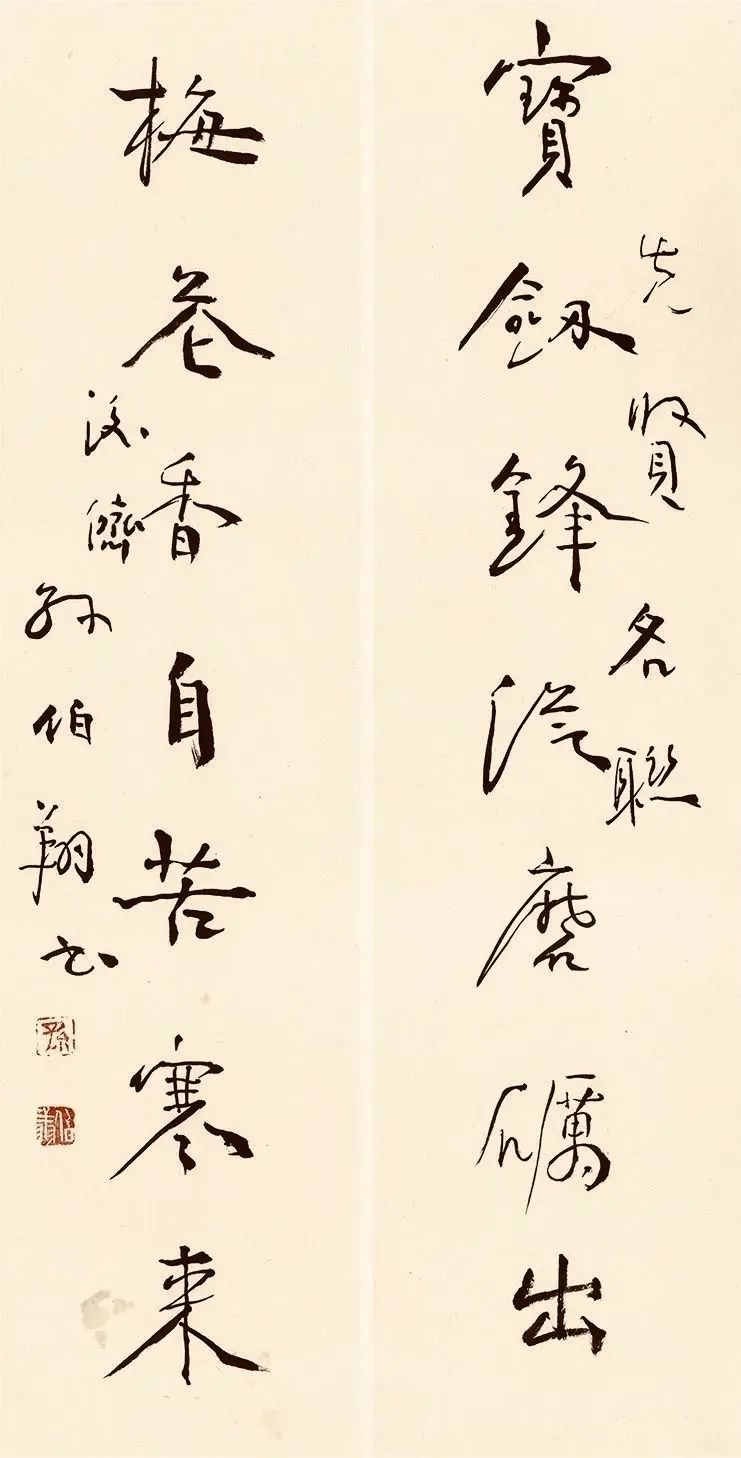 先賢名聯
寶劔鋒從磨礪出
梅花香自苦寒來
孫伯翔書
孫
伯翔